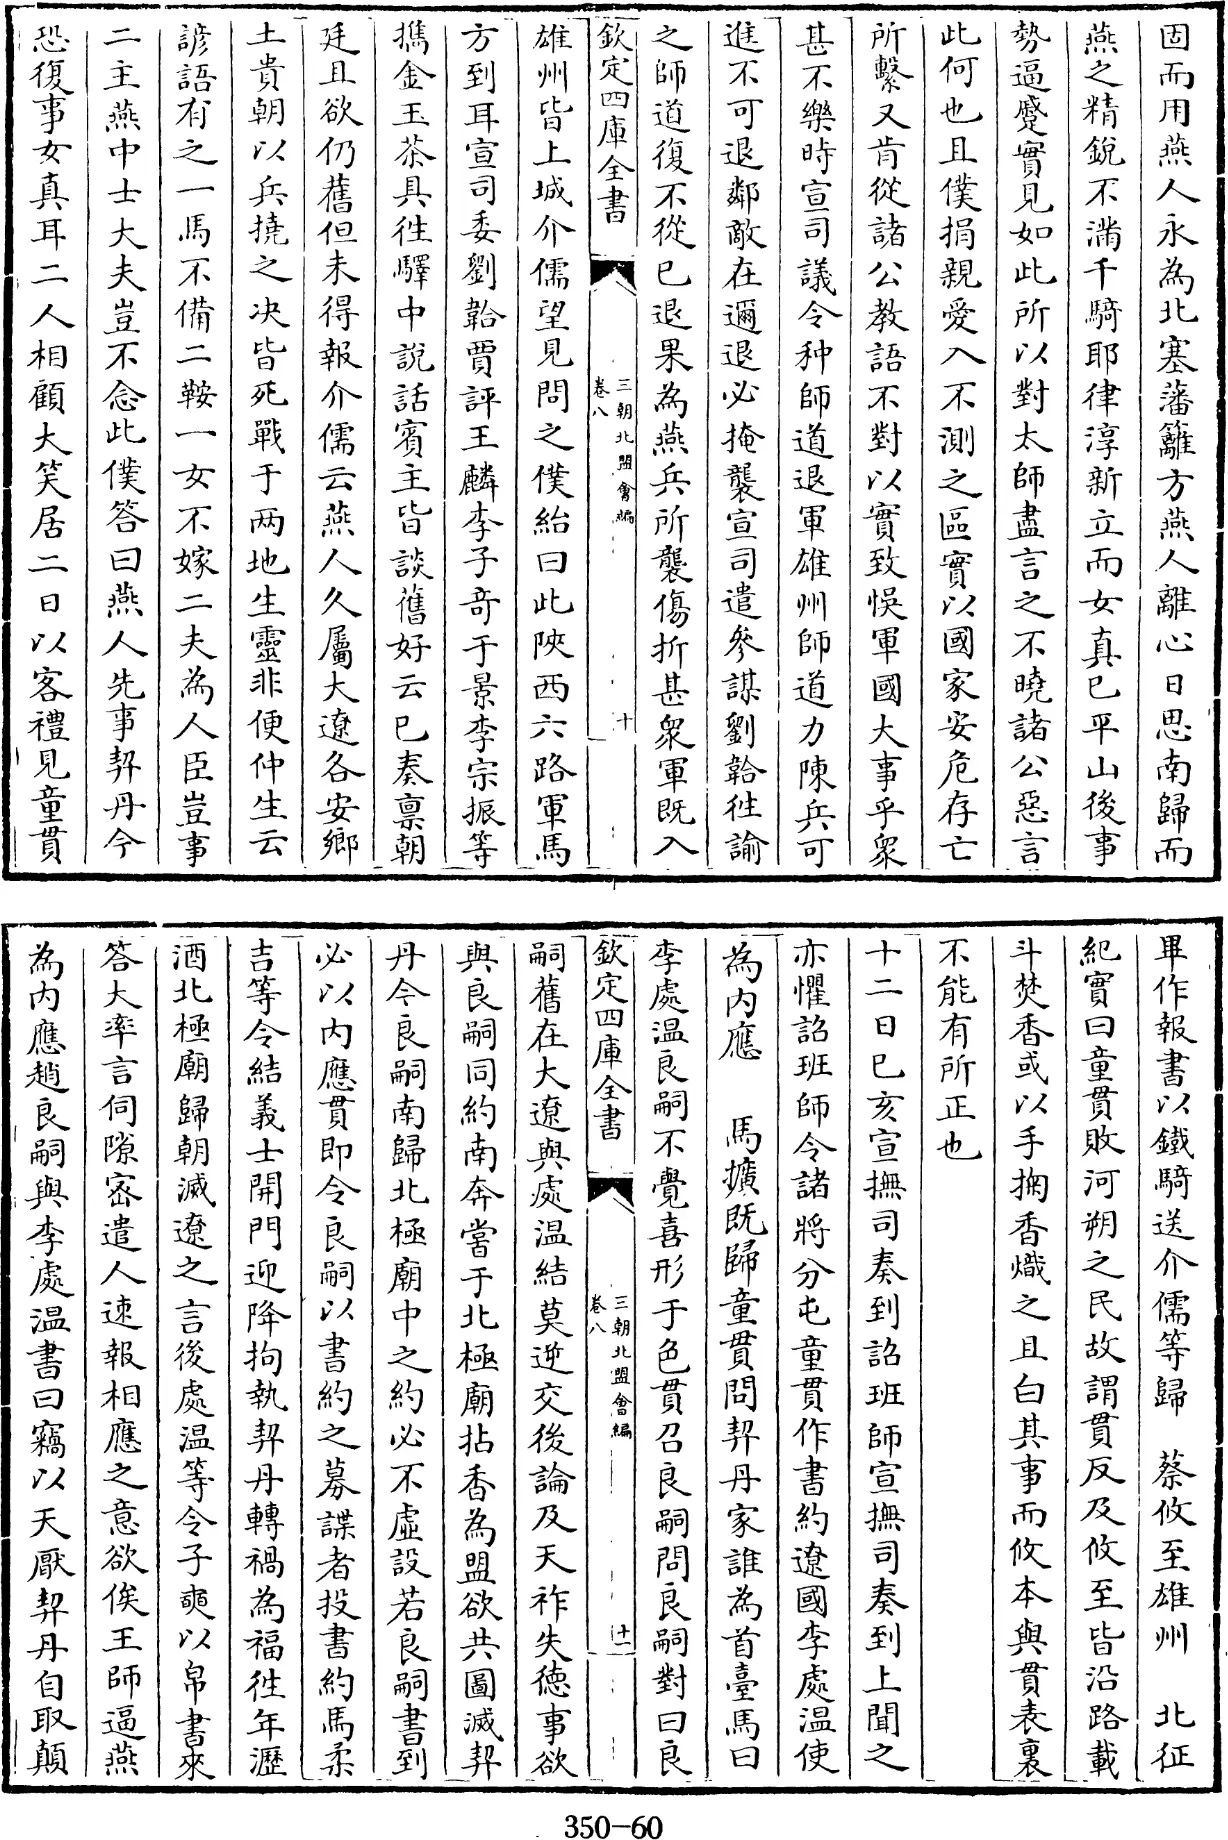 固而用燕人永為北塞藩籬方燕人離心日思南歸而
燕之精銳不滿千騎耶律淳新立而女真已平山後事
勢逼蹙實見如此所以對太師盡言之不曉諸公惡言
此何也且僕捐親愛入不測之區實以國家安危存亡
所繫又肯從諸公教語不對以實致悞軍國大事乎衆
甚不樂時宣司議令种師道退軍雄州師道力陳兵可
進不可退鄰敵在邇退必掩襲宣司遣參謀劉韐徃諭
之師道復不從已退果為燕兵所襲傷折甚衆軍既入
欽定四庫全書
三朝北盟會編
卷八
十
雄州皆上城介儒望見問之僕紿曰此陜西六路軍馬
方到耳宣司委劉韐賈評王麟李子奇于景李宗振等
攜金玉茶具徃驛中說話賓主皆談舊好云已奏禀朝
廷且欲仍舊但未得報介儒云燕人久屬大遼各安鄉
土貴朝以兵撓之決皆死戰于两地生靈非便仲生云
諺語有之一馬不備二鞍一女不嫁二夫為人臣豈事
二主燕中士大夫豈不念此僕答曰燕人先事契丹今
恐復事女真耳二人相顧大笑居二日以客禮見童貫
畢作報書以鐵騎送介儒等歸　蔡攸至雄州　北征
紀實曰童貫敗河朔之民故謂貫反及攸至皆沿路載
斗焚香或以手掬香熾之且白其事而攸本與貫表裏
不能有所正也
十二日已亥宣撫司奏到詔班師宣撫司奏到上聞之
亦懼詔班師令諸將分屯童貫作書約遼國李處温使
為内應　馬擴既歸童貫問契丹家誰為首臺馬曰
李處温良嗣不覺喜形于色貫召良嗣問良嗣對曰良
欽定四庫全書
三朝北盟會編
卷八
十一
嗣舊在大遼與處温結莫逆交後論及天祚失德事欲
與良嗣同約南奔嘗于北極廟拈香為盟欲共圖滅契
丹今良嗣南歸北極廟中之約必不虛設若良嗣書到
必以内應貫即令良嗣以書約之募諜者投書約馬柔
吉等令結義士開門迎降拘執契丹轉禍為福徃年瀝
酒北極廟歸朝滅遼之言後處温等令子奭以帛書來
答大率言伺隙宻遣人速報相應之意欲俟王師逼燕
為内應趙良嗣與李處温書曰竊以天厭契丹自取顛
350-60